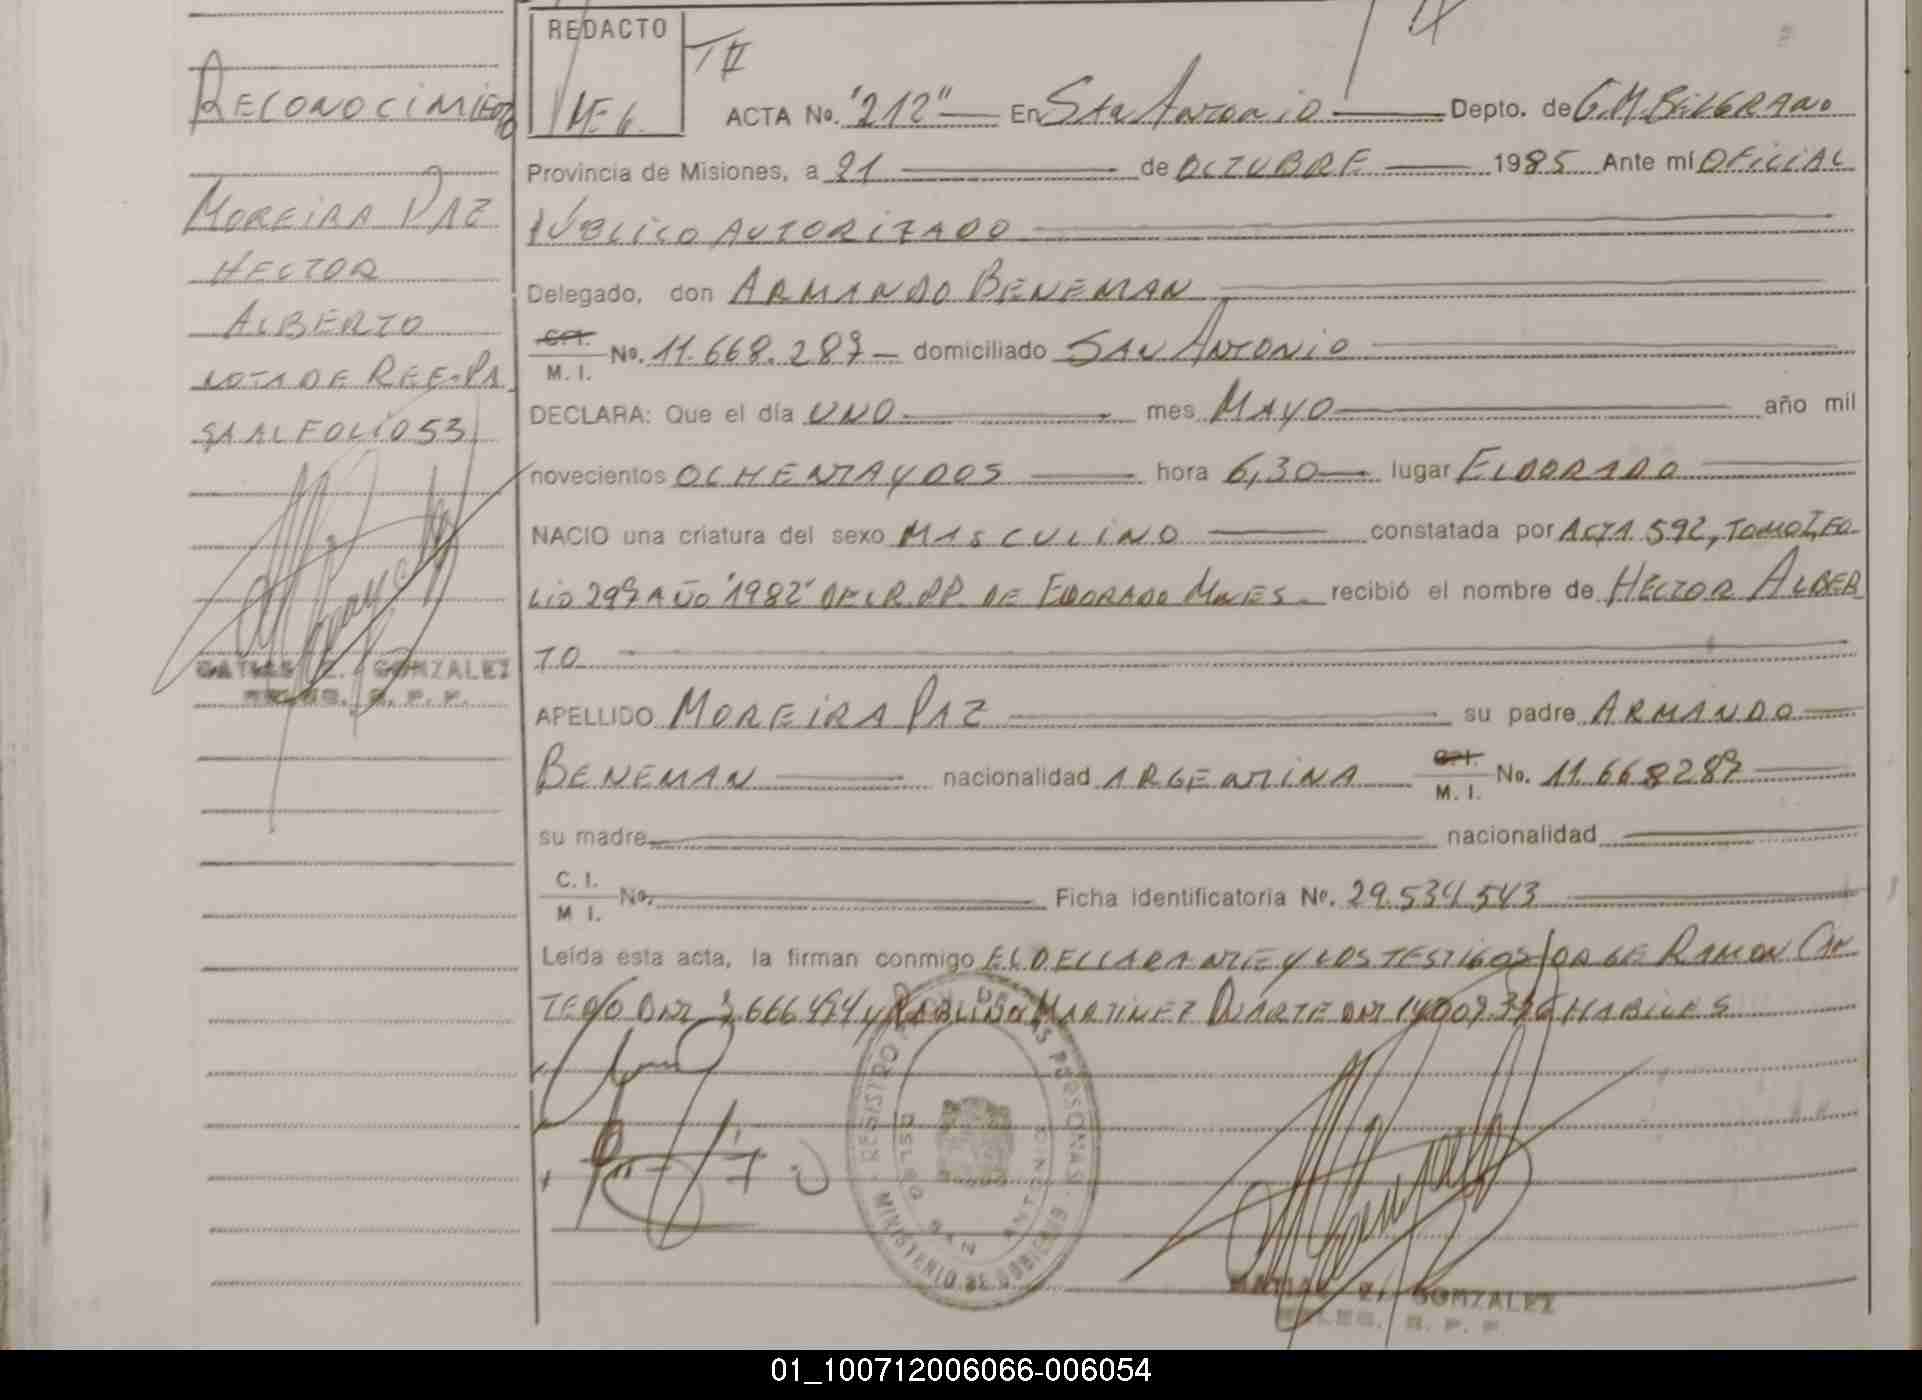 REDACTO
TII
RECONOCIMIENTO
ME 6.
ACTA No. "212" En San Antonio Depto. de G.M. BELGRANO
Provincia de Misiones, a 21 de OCTUBRE 1985 Ante mí OFICIAL
PUBLICO AUTORIZADO
MOREIRA PAZ
HECTOR
Delegado, don ARMANDO BENEMAN
ALBERTO
C.I. No. 11.668.289 domiciliado SAN ANTONIO
M. I.
NOTA DE REF-PA
DECLARA: Que el día UNO mes MAYO año mil
SA AL FOLIO 53
novecientos OCHENTA Y DOS hora 6,30 lugar ELDORADO
NACIO una criatura del sexo MASCULINO constatada por ACTA 592, TOMO I, FO-
LIO 299 AÑO "1982" DEL R.PP. DE ELDORADO MNES. recibió el nombre de HECTOR ALBER
TO
GONZALEZ
DELEG. R. P. P.
APELLIDO MOREIRA PAZ su padre ARMANDO
BENEMAN nacionalidad ARGENTINA C.I. No. 11.668289
M. I.
su madre nacionalidad
C. I. No. Ficha Identificatoria No. 29.534.543
M I.
Leída esta acta, la firman conmigo EL DECLARANTE Y LOS TESTIGOS JORGE RAMON CAN
TERO DNI Y MARTINEZ DUARTE DNI HABILES
REGISTRO DE LAS PERSONAS
DELEG SAN ANTONIO
MINISTERIO DE GOBIERNO
GONZALEZ
DELEG. R. P. P.
01_100712006066-006054